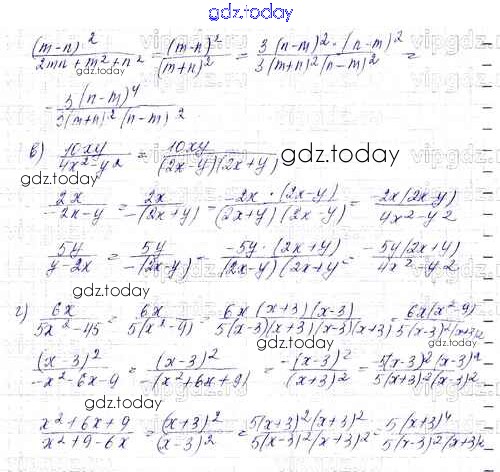 gdz.today
(m-n)²/(2mn+m²+n²) = (m-n)²/(m+n)² = 3(n-m)²·(n-m)²/3(m+n)²(n-m)² =
gdz.today
= 3(n-m)⁴/3(m+n)²(n-m)²
в) 10xy/(4x²-y²) = 10xy/(2x-y)(2x+y) gdz.today
gdz.today
2x/(-2x-y) = 2x/-(2x+y) = -2x·(2x-y)/(2x+y)(2x-y) = -2x(2x-y)/(4x²-y²)
5y/(y-2x) = 5y/-(2x-y) = -5y·(2x+y)/(2x-y)(2x+y = -5y(2x+y)/(4x²-y²)
gdz.today
г) 6x/(5x²-45) = 6x/5(x²-9) = 6x(x+3)(x-3)/5(x-3)(x+3)(x-3)(x+3) = 6x(x²-9)/5(x-3)²(x+3)²
gdz.today
(x-3)²/(-x²-6x-9) = (x-3)²/-(x²+6x+9) = -(x-3)²/(x+3)² = -5(x-3)²(x-3)²/5(x+3)²(x-3)²
gdz.today
(x²+6x+9)/(x²+9-6x) = (x+3)²/(x-3)² = 5(x+3)²(x+3)²/5(x-3)²(x+3)² = 5(x+3)⁴/5(x-3)²(x+3)²
gdz.today